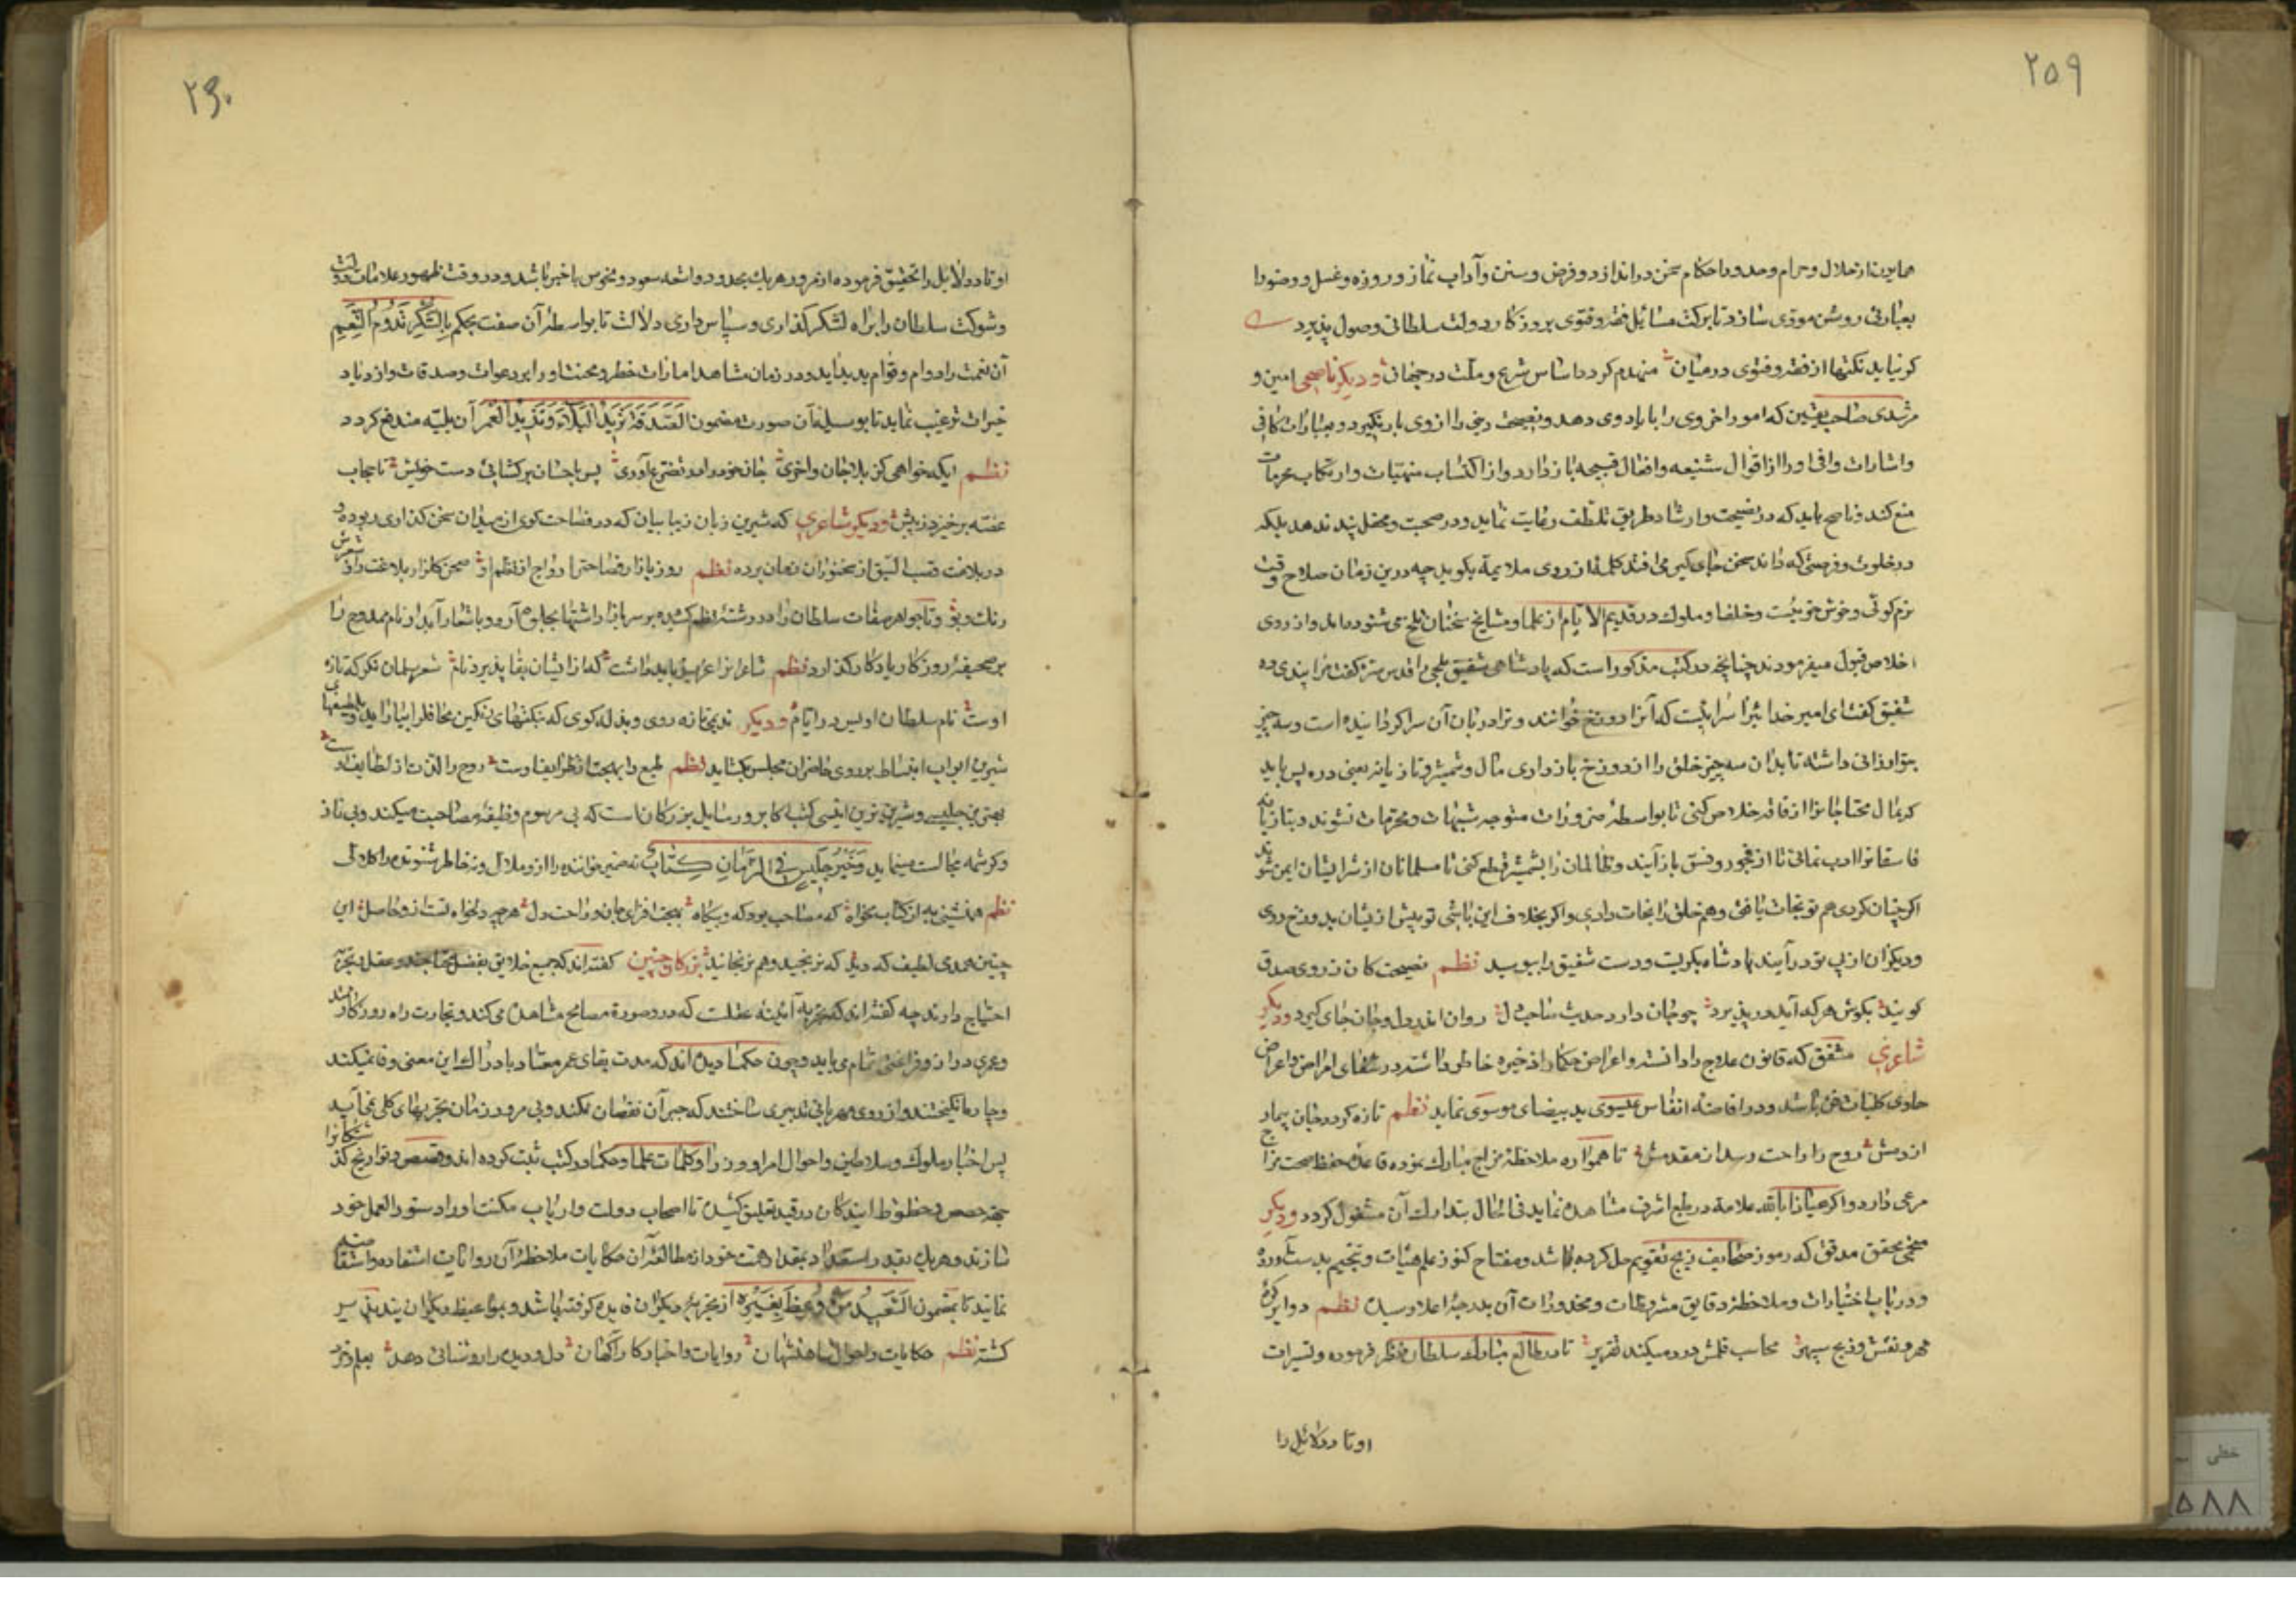 ۲۵۹
همایون از حلال و حرام و حدود احکام سخن در اندازد و فرض و سنن و آداب نماز و روزه و غسل و وضو را
بعبارتی روشن مؤدی سازد تا برکت مسائل فقه و فتوی بروزکار دولت سلطانی وصول پذیرد
کر نیاید نکتها از فقه و فتوی در میان منهدم کردد اساس شرع و ملت در جهان و دیکر ناصحی امین و
مرشدی صاحب یقین که امور اخروی را با یاد وی دهد و نصیحت دینی را از وی باز نکیرد و بعبارات کافی
و اشارات وافی او را از اقوال شنیعه و افعال قبیحه باز دارد و از اکتساب منهیات و ارتکاب محرمات
منع کند و ناصح باید که در نصیحت و ارشاد طریق تلطف رعایت نماید و در صحبت و محفل پند ندهد بلکه
در خلوت و فرصتی که داند سخن جای کیر می افتد کلمهٔ از روی ملایمة بکوید چه درین زمان صلاح وقت
نرم کوئی و خوش خوئیست و خلفا و ملوک در قدیم الایام از علما و مشایخ سخنان تلخ می شنوده اند و از روی
اخلاص قبول میفرمودند چنانچه در کتب مذکور است که پادشاهی شفیق بلخی را قدس سره کفت مرا پندی ده
شفیق کفت ای امیر خدایرا سرائیست که آنرا دوزخ خوانند و ترا دربان آن سرا کردانیده است و سه چیز
بتو ارزانی داشته تا بدان سه چیز خلق را از دوزخ باز داری مال و شمشیر و تازیانه یعنی دره پس باید
که بمال محتاجانرا از فاقه خلاص کنی تا بواسطهٔ ضرورات متوجه شبهات و محرمات نشوند و بتازیانه
فاسقانرا ادب نمائی تا از فجور و فسق باز آیند و ظالمان را بشمشیر قطع کنی تا مسلمانان از شر ایشان ایمن شوند
اکر چنان کردی هم تو نجات یافتی و هم خلق را نجات دادی و اکر بخلاف این باشی تو پیش از ایشان بدوزخ روی
و دیکران از پی تو در آیند پادشاه بکریست و دست شفیق را ببوسید نظم نصیحت کان ز روی صدق
کویند بکوش هر که آید در پذیرد چو جان دارد حدیث صاحب دل روان اندر دل و جان جای کیرد و دیکر
شاعری مشفق که قانون علاج را دانسته و اغراض حکما را ذخیره خاطر داشته در شفای امراض و اعراض
حاوی کلیات فن باشد و در افاضه انفاس عیسوی ید بیضای موسوی نماید نظم تازه کردد جان بیمار
از دمش روح را راحت رسد از مقدمش تا همواره ملاحظهٔ مزاج مبارک نموده قاعدهٔ حفظ صحت مزاج
مرعی دارد و اکر عیاذا بالله علامة در طبع اشرف مشاهده نماید فی الحال بتدارک آن مشغول کردد و دیکر
منجمی محقق مدقق که رموز صحایف زیج تقویم حل کرده باشد و مفتاح کنوز علم هیأت و تنجیم بدست آورده
و در باب اختیارات و ملاحظه دقایق مشروطات و محذورات آن بدرجهٔ اعلا رسیده نظم دوایر کرهٔ
مهر و نقش و زیج سپهر محاسب قلمش در دمیکند تقریر تا در طالع مبارک سلطان نظر فرموده و تسییرات
اوتاد و دلائل را
۲۶۰
اوتاد و دلایل را تحقیق فرموده از مرور هر یک بحدود و اشعه سعود و نحوس با خبر باشد و در وقت ظهور علامات دولت
و شوکت سلطان را براه لشکر کذاری و سپاس داری دلالت تا بواسطهٔ آن صفت بحکم بِالشُّكْرِ تَدُومُ النِّعَمِ
آن نعمت را دوام و قوام پدید آید و در زمان مشاهد امارات خطر و محنت او را بر دعوات و صدقات و ازدیاد
خیرات ترغیب نماید تا بوسیلهٔ آن صورت مضمون اَلصَّدَقَةُ تَرُدُّ الْبَلاءَ وَتَزِیدُ الْعُمْرَ آن بلیه مندفع کردد
نظم ایکه خواهی کز بلا جان واخری جان خود را در تضرع آوری پس باحسان برکشائی دست خویش تا حجاب
غصه برخیزد ز پیش و دیکر شاعری که شیرین زبان زیبا بیان که در فصاحت کوی از میدان سخن کذاری ربوده و
در بلاغت قصب السبق از سخنوران زمان برده نظم روز بازار فصاحت را رواج از نظم او صحن کلزار بلاغت را ز شعرش
رنک و بوی و تا جواهر صفات سلطان را در رشتهٔ نظم کشیده بر سر بازار اشتهار بجلوه آرد و باشعار آبدار نام ممدوح را
بر صحیفهٔ روزکار یادکار کذارد نظم شاعرانرا عزیز باید داشت که از ایشان بقا پذیرد نام شعر سلمان نکر که تازه
اوست نام سلطان اویس در ایام و دیکر ندیمی تازه روی و بذله کوی که بنکتهای رنکین محافل را بیاراید و بلطیفهای
شیرین ابواب انبساط بر روی حاضران مجلس بکشاید نظم طبع را بهجت از ظرایف اوست روح را لذت از لطایف اوست
بهترین جلیسی و شیرین ترین انیسی کتب اکابر و رسایل بزرکان است که بی مرسوم وظیفهٔ مصاحبت میکند و بی ناز
و کرشمه مجالست مینماید وَخَيْرُ جَلِيسٍ فِي الزَّمَانِ كِتَابُ نه ضمیر خواننده را ازو ملال و نه خاطر شنونده را کلالی
نظم همنشینی به از کتاب مخواه که مصاحب بود که و بیکاه بهجت افزای جان و راحت دل هر چه دلخواه تست ازو حاصل این
چنین همدمی لطیف که دید که نرنجید و هم نرنجانید بزرکان چنین کفته اند که جمیع خلایق بفضل محتاجند و عقل بتجربه
احتیاج دارند چه کفته اند که تجربه آئینهٔ عقلست که در و صورة مصالح مشاهده می کند و تجارت را در روزکار مند
و عمری دراز و فراغتی تمام می باید و چون حکما دیده اند که مدت بقای عمر معتاد بادراک این معنی وفا نمیکند
و چاره انکیختند و از روی مهربانی تدبیری ساختند که جبر آن نقصان بکند و بی مرور زمان تجربهای کلی بجا آید
پس اخبار ملوک و سلاطین و احوال امرا و وزرا و کلمات علما و حکما در کتب ثبت کرده اند و قصص و تواریخ کذشتکانرا
جهة حصص و حظوظ آیندکان در قید تعلیق کشیده تا اصحاب دولت و ارباب مکنت او را دستور العمل خود
سازند و هر یک بقدر استعداد بمقدار همت خود از مطالعهٔ آن حکایات ملاحظهٔ آن روایات استفاده و استفاضه
نمایند تا بمضمون اَلسَّعِیدُ مَنْ وُعِظَ بِغَیْرِهِ از تجربهٔ دیکران فایده کرفته باشد و بمواعیظ دیکران پند پذیر
کشته نظم حکایات و احوال شاهنشهان روایات و اخبار کار آکهان دل و دیده را روشنائی دهد بعلم و خرد
خطی
۵۸۸